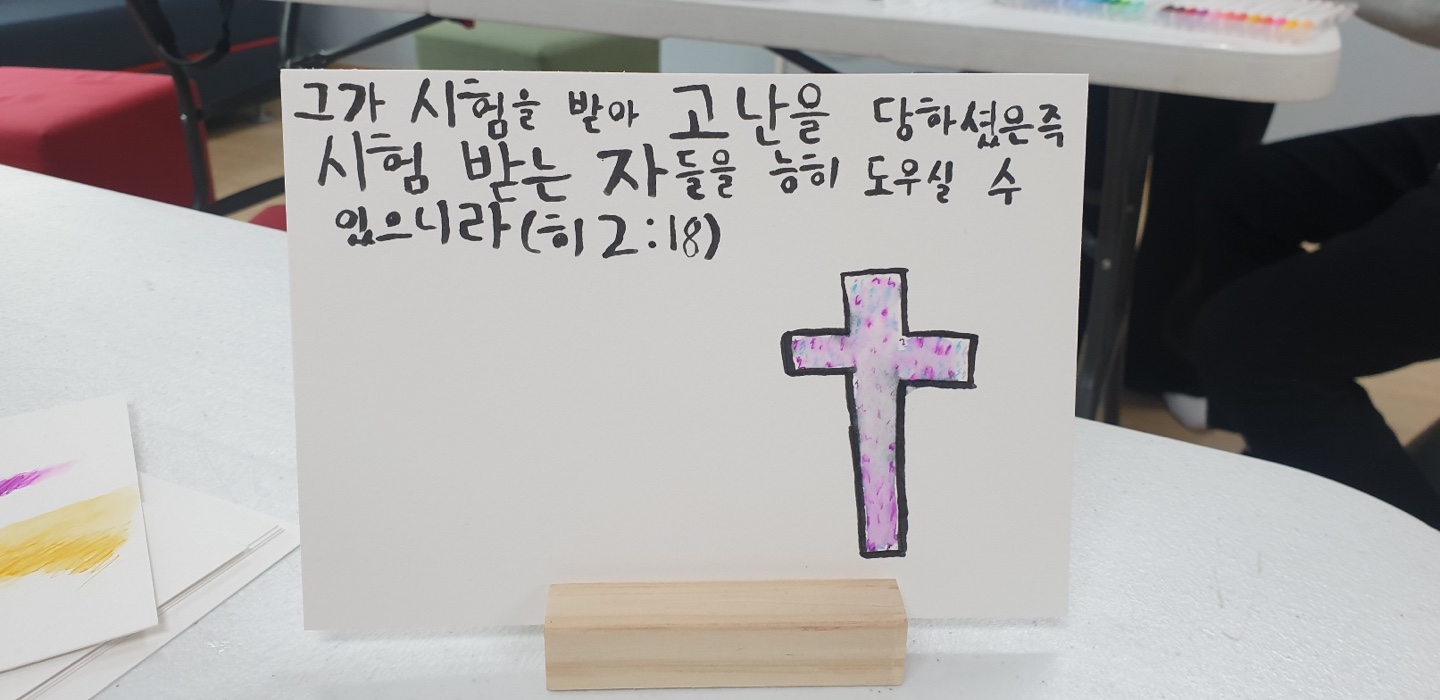 그가 시험을 받아 고난을 당하셨은즉
시험 받는 자들을 능히 도우실 수
있으니라(히2:18)